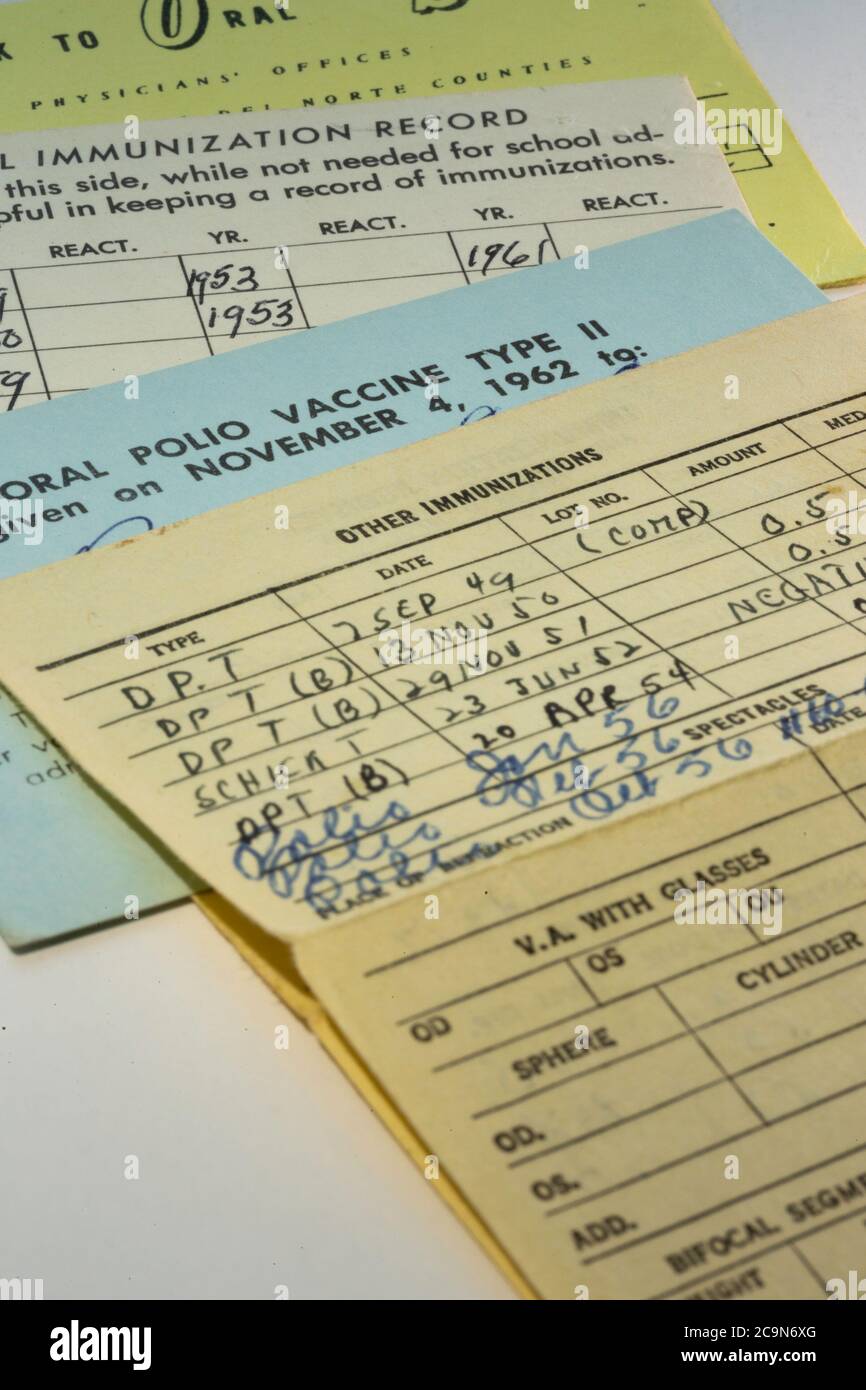 K TO ORAL
PHYSICIANS' OFFICES
DEL NORTE COUNTIES
L IMMUNIZATION RECORD
this side, while not needed for school ad-
pful in keeping a record of immunizations.
REACT. YR. REACT. YR. REACT.
1953 1961
1953
ORAL POLIO VACCINE TYPE II
given on NOVEMBER 4, 1962 to:
OTHER IMMUNIZATIONS
TYPE DATE LOT NO. AMOUNT MED
D.P.T 2 SEP 49 (COMP) 0.5
DPT (B) 18 NOV 50 0.5
DPT (B) 29 NOV 51
SCHICK T 23 JUN 52 NEGATI
DPT (B) 20 APR 54
Polio Jan 56
Polio Feb 56
Polio Oct 56
SPECTACLES
PLACE OF REFRACTION DATE
V.A. WITH GLASSES
OD OS OU
SPHERE CYLINDER
OD.
OS.
ADD.
BIFOCAL SEGME
alamy
Image ID: 2C9N6XG
www.alamy.com